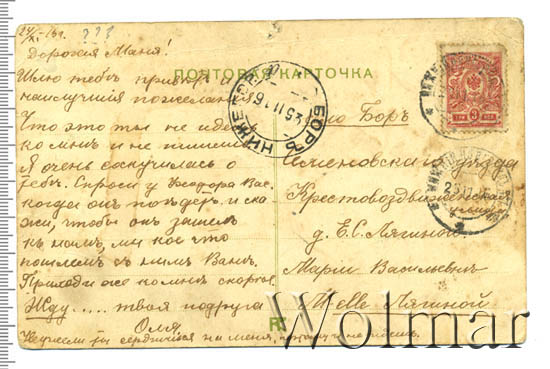 24/XI-16г.
Дорогая Маня!
Шлю тебѣ привѣтъ и
наилучшія пожеланія.
Что это ты не идешь
ко мнѣ и не пишешь
Я очень соскучилась о
тебѣ. Спроси у Ѳеодора Вас.
когда онъ поѣдетъ и ска-
жи, чтобы онъ зашелъ
къ намъ, мы кое что
пошлемъ съ нимъ Вамъ.
Приходи же ко мнѣ скорѣе.
Жду..... твоя подруга
Оля.
Неужели ты сердишься на меня,
ПОЧТОВАЯ КАРТОЧКА
Боръ
Семеновскаго уѣзда
Крестовоздвиженская
д. Е.С. Лягиной
Маріи Васильевнѣ
M-elle Лягиной
БОРЪ НИЖЕГОР.
3 КОП
Wolmar